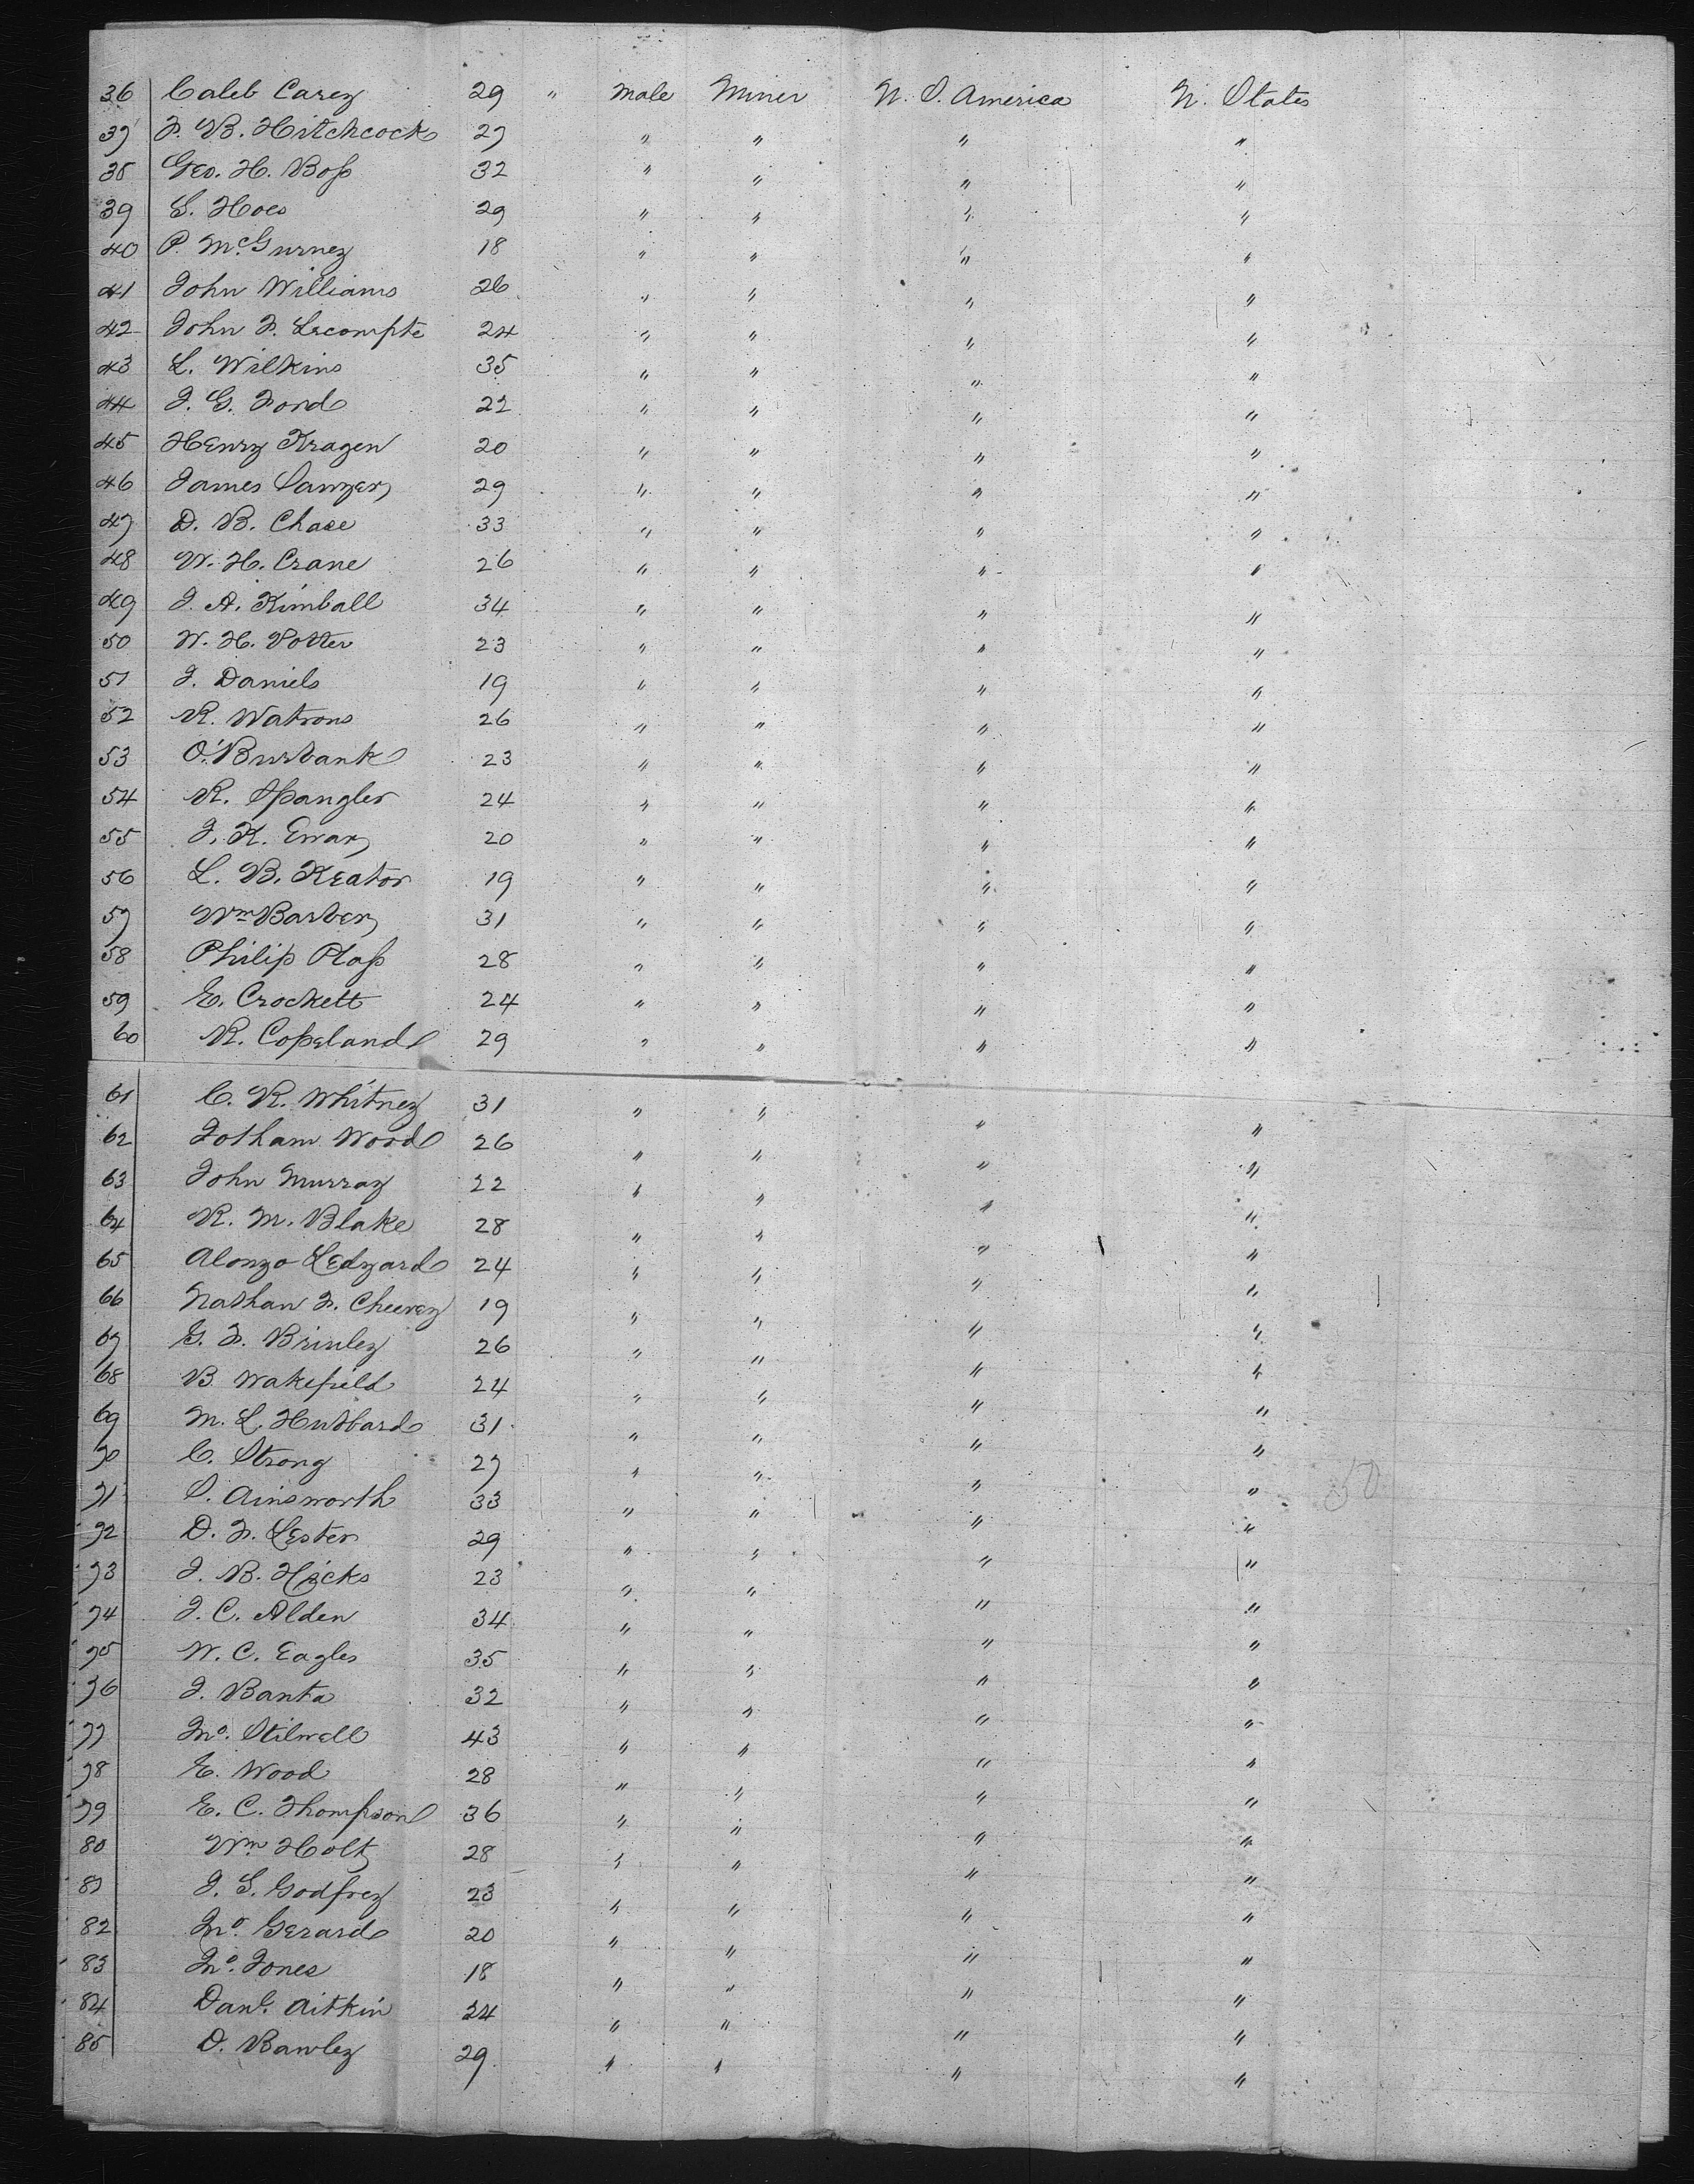 36 Caleb Carey 29 " Male Miner U. S. America U. States
37 F. B. Hitchcock 27 " " " "
38 Geo. H. Boss 32 " " " "
39 S. Hoes 29 " " " "
40 P. McGurney 18 " " " "
41 John Williams 26 " " " "
42 John F. Lecompte 24 " " " "
43 L. Wilkins 35 " " " "
44 J. G. Ford 22 " " " "
45 Henry Kragen 20 " " " "
46 James Sawyer 29 " " " "
47 D. B. Chase 33 " " " "
48 W. H. Crane 26 " " " "
49 J. A. Kimball 34 " " " "
50 W. H. Potter 23 " " " "
51 J. Daniels 19 " " " "
52 R. Watrous 26 " " " "
53 O. Burbank 23 " " " "
54 R. Spangler 24 " " " "
55 J. K. 20 " " " "
56 L. B. Keator 19 " " " "
57 Wm Barber 31 " " " "
58 Philip Plass 28 " " " "
59 E. Crockett 24 " " " "
60 R. Copeland 29 " " " "
61 C. R. Whitney 31 " " " "
62 Jotham Wood 26 " " " "
63 John Murray 22 " " " "
64 R. M. Blake 28 " " " "
65 Alonzo Ledyard 24 " " " "
66 Nathan F. Cheevey 19 " " " "
67 G. F. Brinley 26 " " " "
68 B. Wakefield 24 " " " "
69 M. L. Hubbard 31 " " " "
70 C. Strong 27 " " " "
71 S. Ainsworth 33 " " " "
72 D. F. Lester 29 " " " "
73 J. B. Hicks 23 " " " "
74 J. C. Alden 34 " " " "
75 W. C. Eagles 35 " " " "
76 J. Banta 32 " " " "
77 Jno. Stilwell 43 " " " "
78 E. Wood 28 " " " "
79 E. C. Thompson 36 " " " "
80 Wm Holt 28 " " " "
81 J. S. Godfrey 23 " " " "
82 Jno. Gerard 20 " " " "
83 Jno. Jones 18 " " " "
84 Danl. Aitkin 24 " " " "
85 D. Bawley 29 " " " "
50